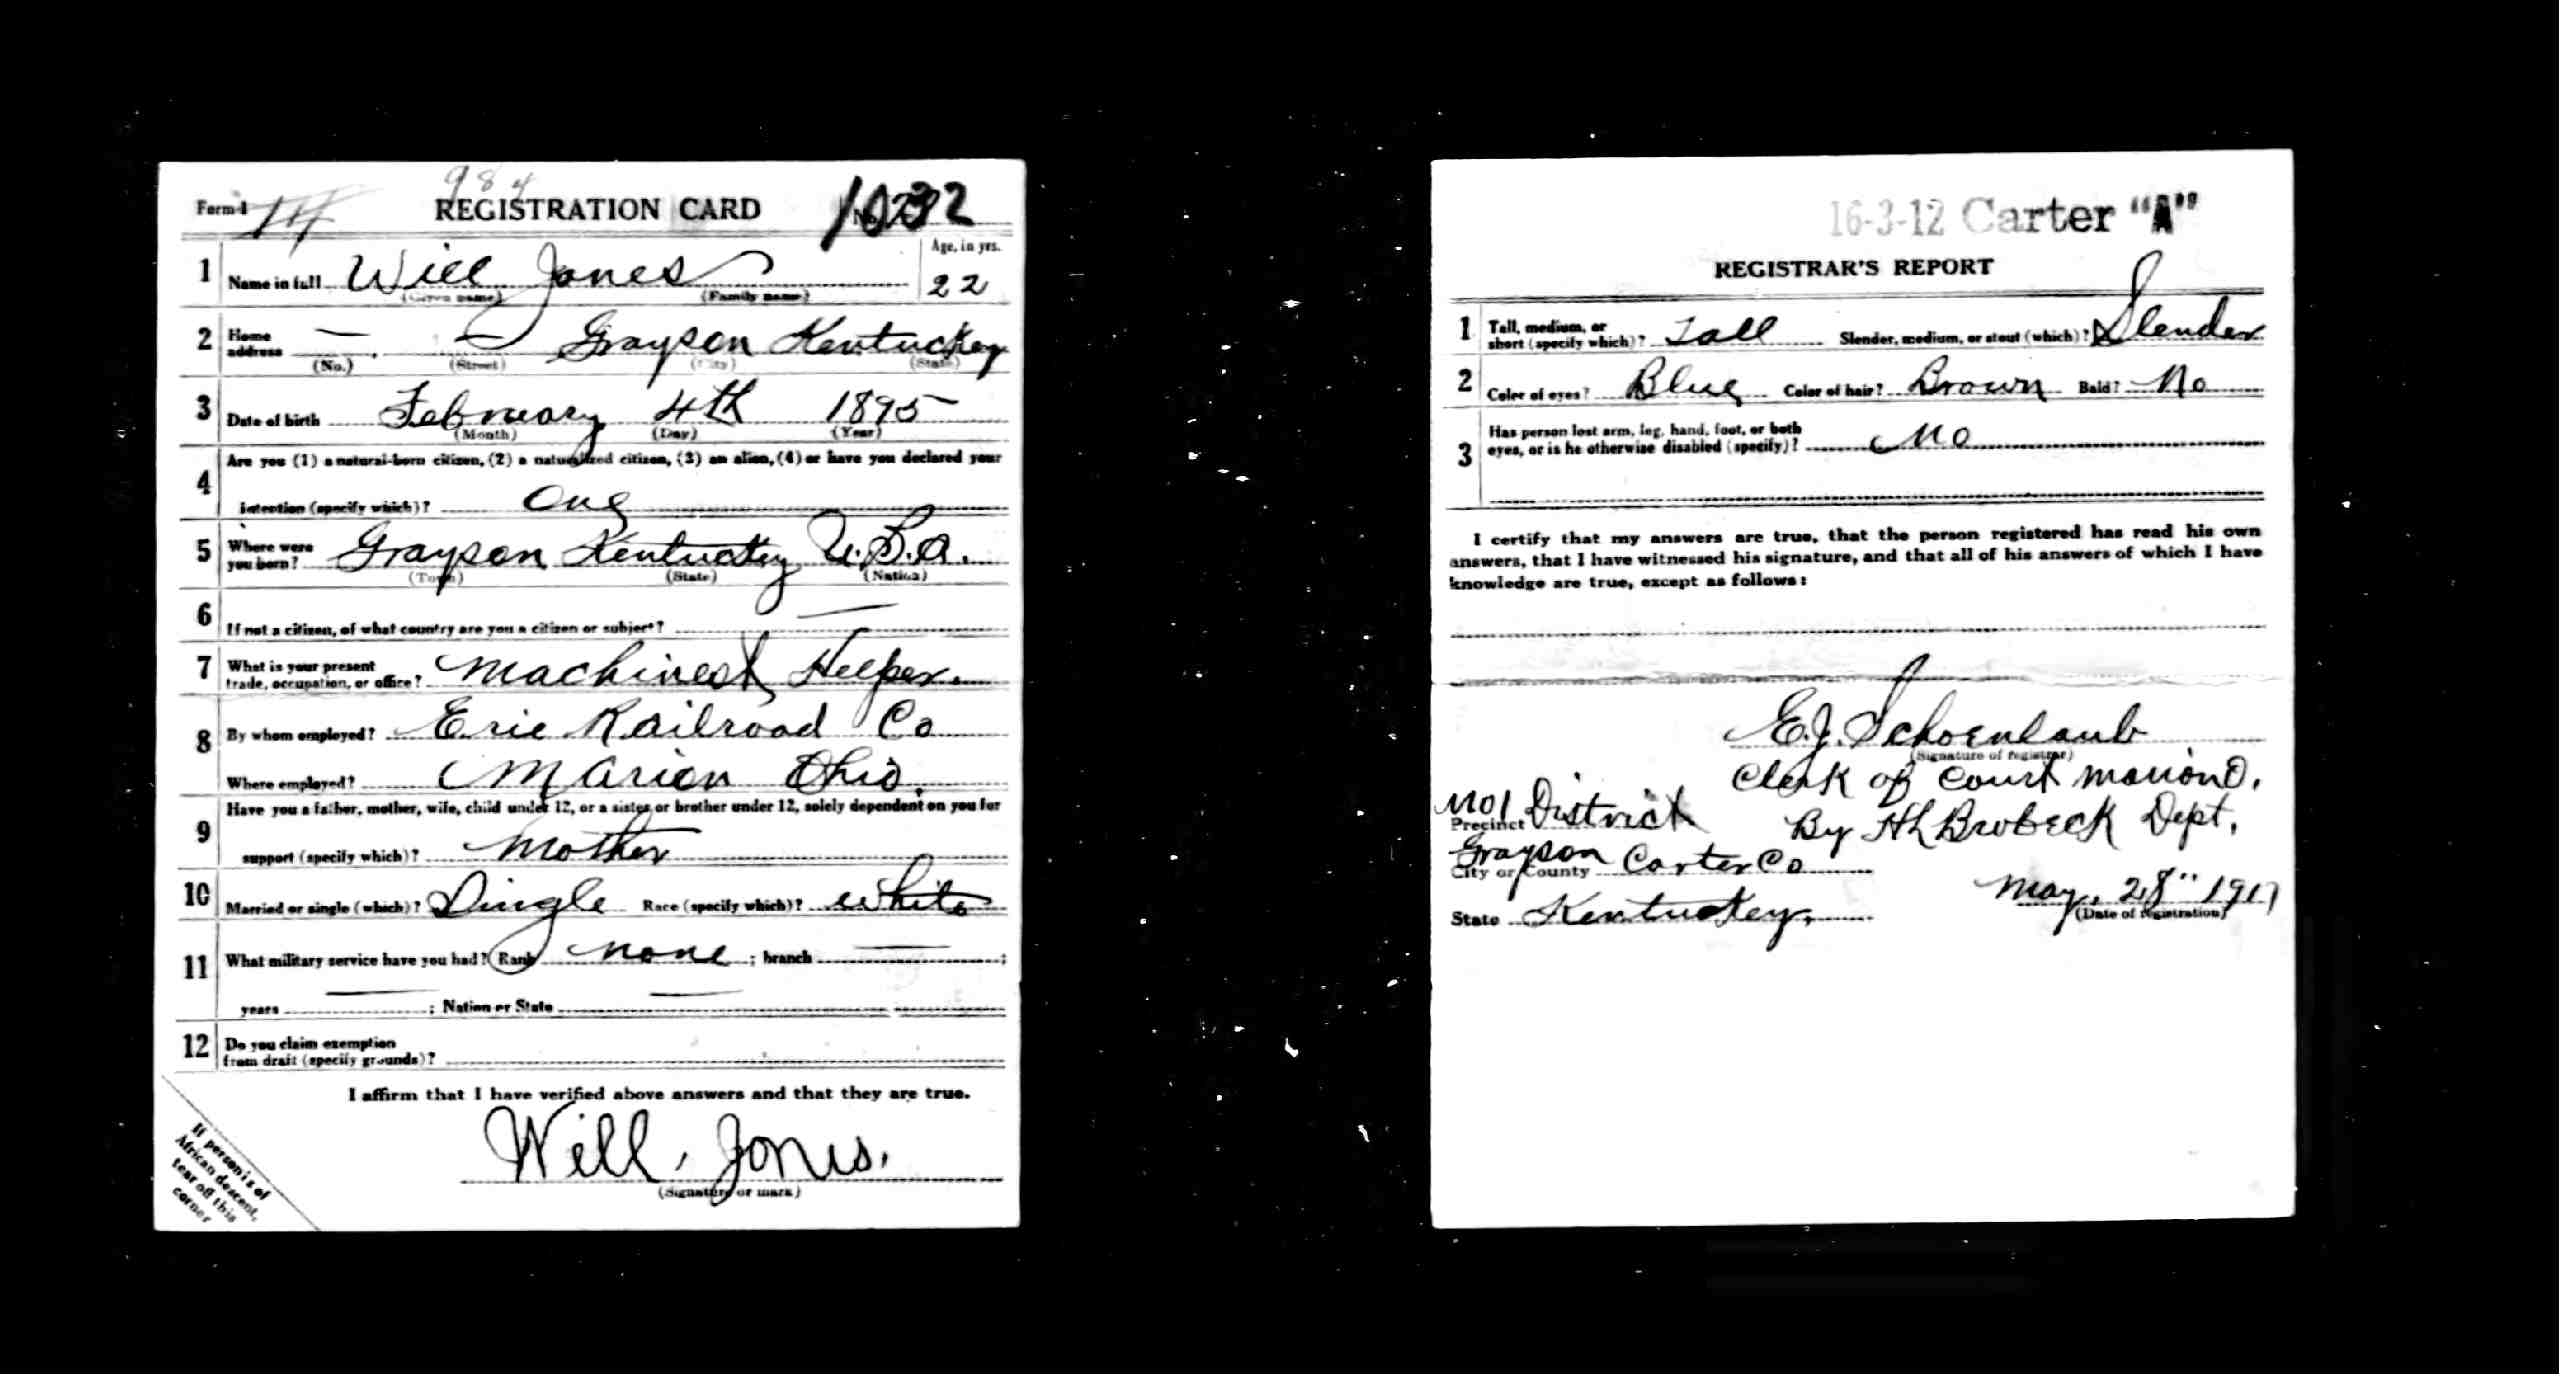 984
Form 1 REGISTRATION CARD No. 1032
1 Name in full Will Jones Age, in yrs. 22
(Given name) (Family name)
2 Home address — — Grayson Kentucky
(No.) (Street) (City) (State)
3 Date of birth February 4th 1895
(Month) (Day) (Year)
4 Are you (1) a natural-born citizen, (2) a naturalized citizen, (3) an alien, (4) or have you declared your
intention (specify which)? One
5 Where were you born? Grayson Kentucky U.S.A.
(Town) (State) (Nation)
6 If not a citizen, of what country are you a citizen or subject? —
7 What is your present trade, occupation, or office? Machinest Helper.
8 By whom employed? Erie Railroad Co
Where employed? Marion Ohio.
9 Have you a father, mother, wife, child under 12, or a sister or brother under 12, solely dependent on you for
support (specify which)? Mother
10 Married or single (which)? Single Race (specify which)? White
11 What military service have you had? Rank none ; branch — ;
years — ; Nation or State —
12 Do you claim exemption
from draft (specify grounds)?
I affirm that I have verified above answers and that they are true.
Will Jones.
(Signature or mark)
If person is of
African descent,
tear off this
corner
16-3-12 Carter "A"
REGISTRAR'S REPORT
1 Tall, medium, or short (specify which)? Tall Slender, medium, or stout (which)? Slender
2 Color of eyes? Blue Color of hair? Brown Bald? No
3 Has person lost arm, leg, hand, foot, or both
eyes, or is he otherwise disabled (specify)? No
I certify that my answers are true, that the person registered has read his own
answers, that I have witnessed his signature, and that all of his answers of which I have
knowledge are true, except as follows:
E.J. Schoenlaub
(Signature of registrar)
Clerk of Court Marion O.
Precinct No 1 District By H L Brobeck Dept.
City or County Grayson Carter Co
State Kentucky. May, 28" 1917
(Date of registration)